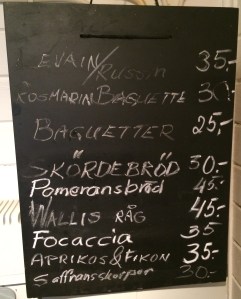 LEVAIN/RUSSIN 35:-
ROSMARIN BAGUETTE 30:-
BAGUETTER 25,-
SKÖRDEBRÖD 30:-
Pomeransbröd 45:-
WALLIS RÅG 45.-
Focaccia 35
APRIKOS & FIKON 35:-
Saffransskorper 30:-